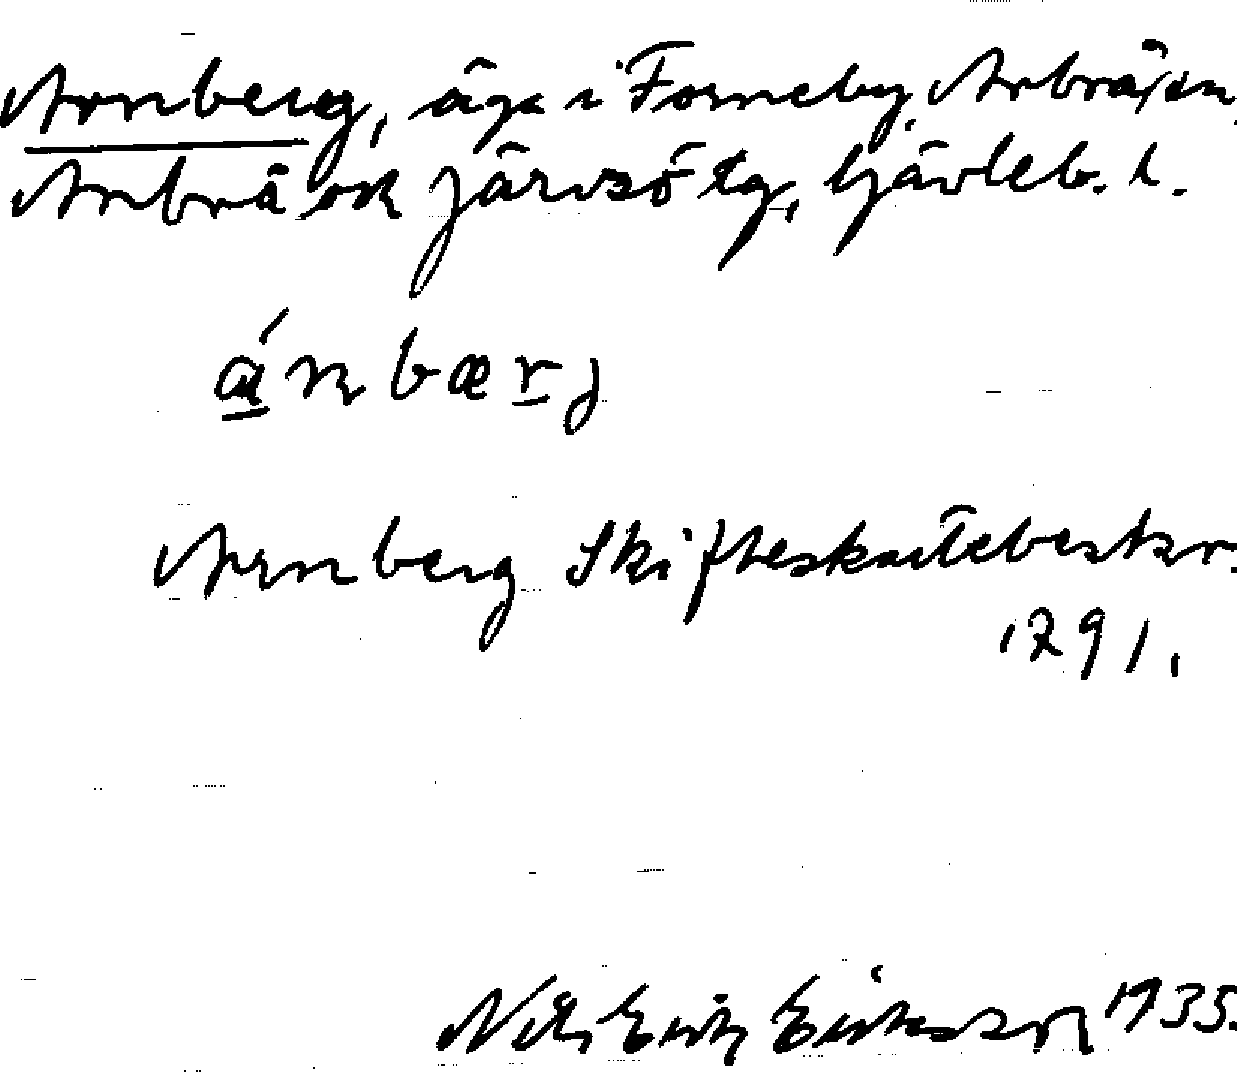 Arnberg, äga i Forneby, Arbrå sn,
Arbrå ok Järvsö tg, Gävleb. l.
án bærj
Arnberg Skifteskartebeskr.
1791.
Nils Erik Eriksson 1935.